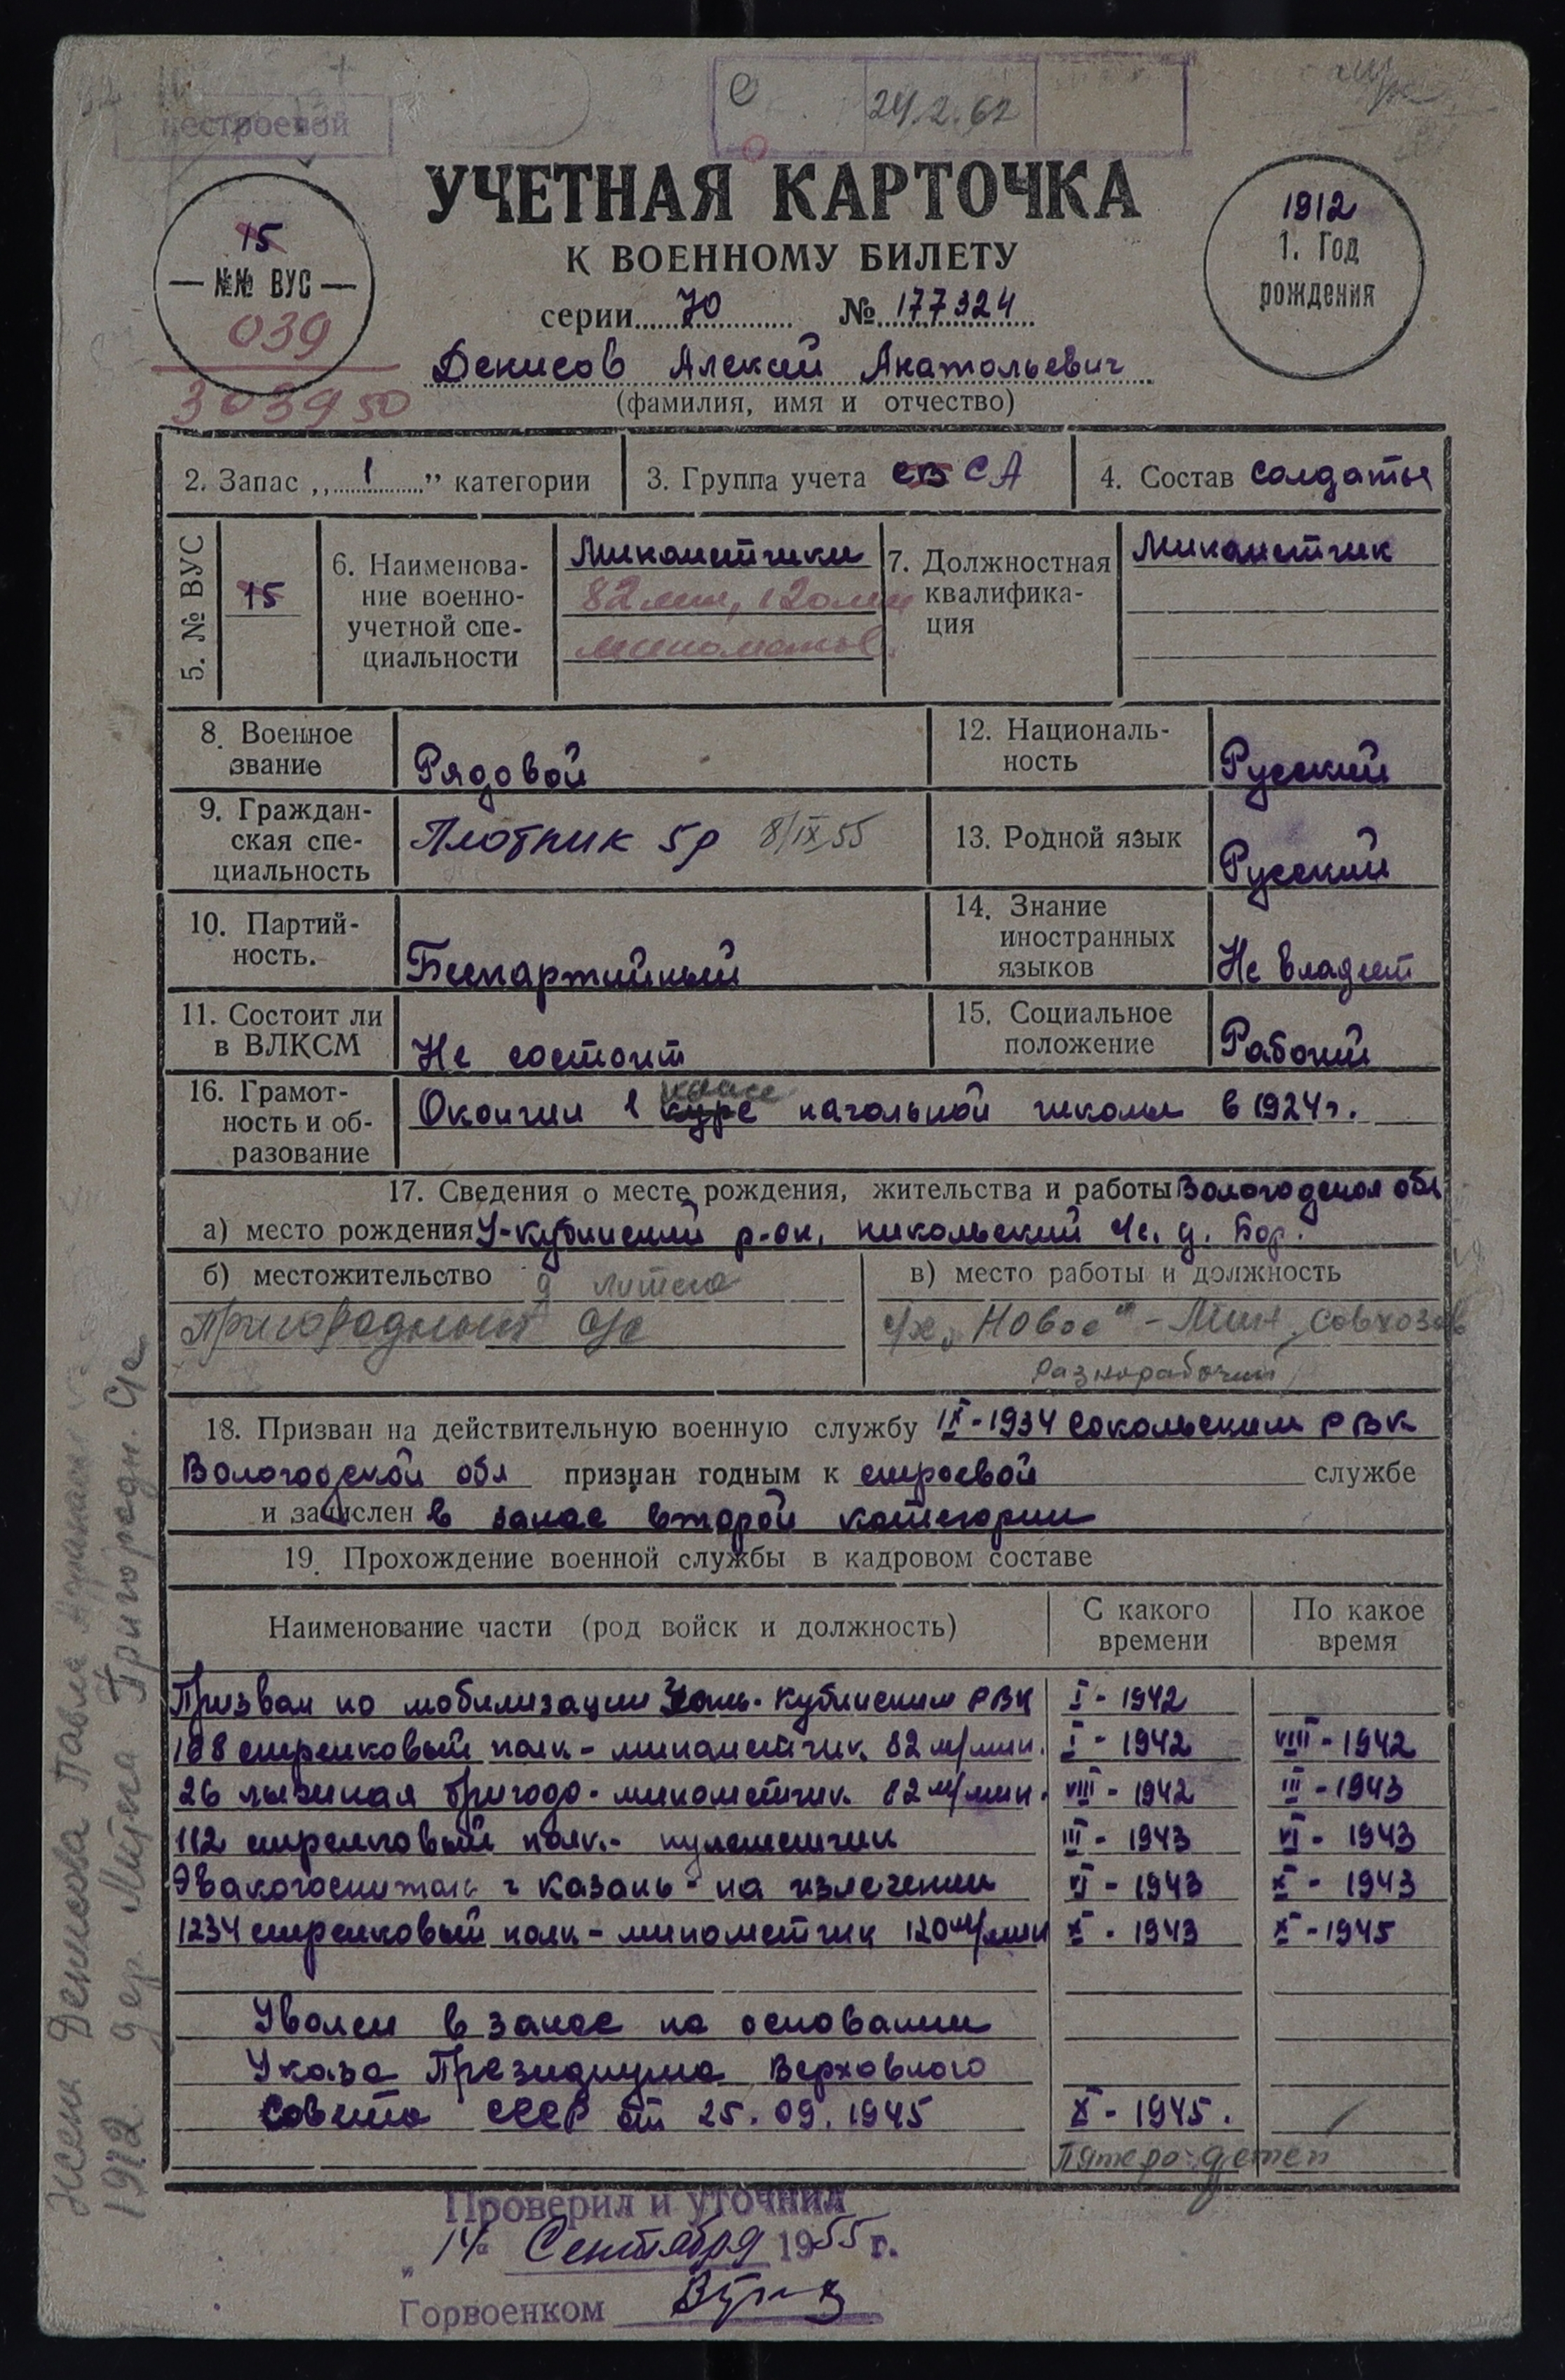 нестроевой
С 24.2.62
УЧЕТНАЯ КАРТОЧКА
К ВОЕННОМУ БИЛЕТУ
серии Ю № 177324
15
— №№ ВУС —
039
303950
1912
1. Год
рождения
Денисов Алексей Анатольевич
(фамилия, имя и отчество)
2. Запас „1” категории
3. Группа учета СВ СА
4. Состав солдаты
5. № ВУС
15
6. Наименова-
ние военно-
учетной спе-
циальности
Минометчики
82 мм, 120 мм
минометов.
7. Должностная
квалифика-
ция
Минометчик
8. Военное
звание
Рядовой
12. Националь-
ность
Русский
9. Граждан-
ская спе-
циальность
Плотник 5р 8/IX 55
13. Родной язык
Русский
10. Партий-
ность.
Беспартийный
14. Знание
иностранных
языков
Не владеет
11. Состоит ли
в ВЛКСМ
Не состоит
15. Социальное
положение
Рабочий
16. Грамот-
ность и об-
разование
класс
Окончил 1 курс начальной школы в 1924г.
17. Сведения о месте рождения, жительства и работы Вологодская обл
а) место рождения У-Кубинский р-он, Никольский с/с. д. Бор.
б) местожительство д Литега
Пригородный с/с
в) место работы и должность
с/х „Новое" - Мин. совхозов
Разнорабочий
18. Призван на действительную военную службу IX-1934 Сокольским РВК
Вологодской обл признан годным к строевой службе
и зачислен в запас второй категории
19. Прохождение военной службы в кадровом составе
Наименование части (род войск и должность)
С какого
времени
По какое
время
Призван по мобилизации Усть-Кубинским РВК I - 1942
108 стрелковый полк - минометчик 82 м/мин. I - 1942 VIII - 1942
26 лыжная бригада - минометчик 82 м/мин. VIII - 1942 III - 1943
112 стрелковый полк - пулеметчик III - 1943 VI - 1943
Эвакогоспиталь г Казань - на излечении VI - 1943 X - 1943
1234 стрелковый полк - минометчик 120 м/мин X - 1943 X - 1945
Уволен в запас на основании
Указа Президиума Верховного
Совета СССР от 25.09.1945 X - 1945.
Пятеро детей
Проверил и уточнил
„14" Сентября 1955 г.
Горвоенком
Жена Денисова Павла
1912. дер. Литега Пригородн. с/с